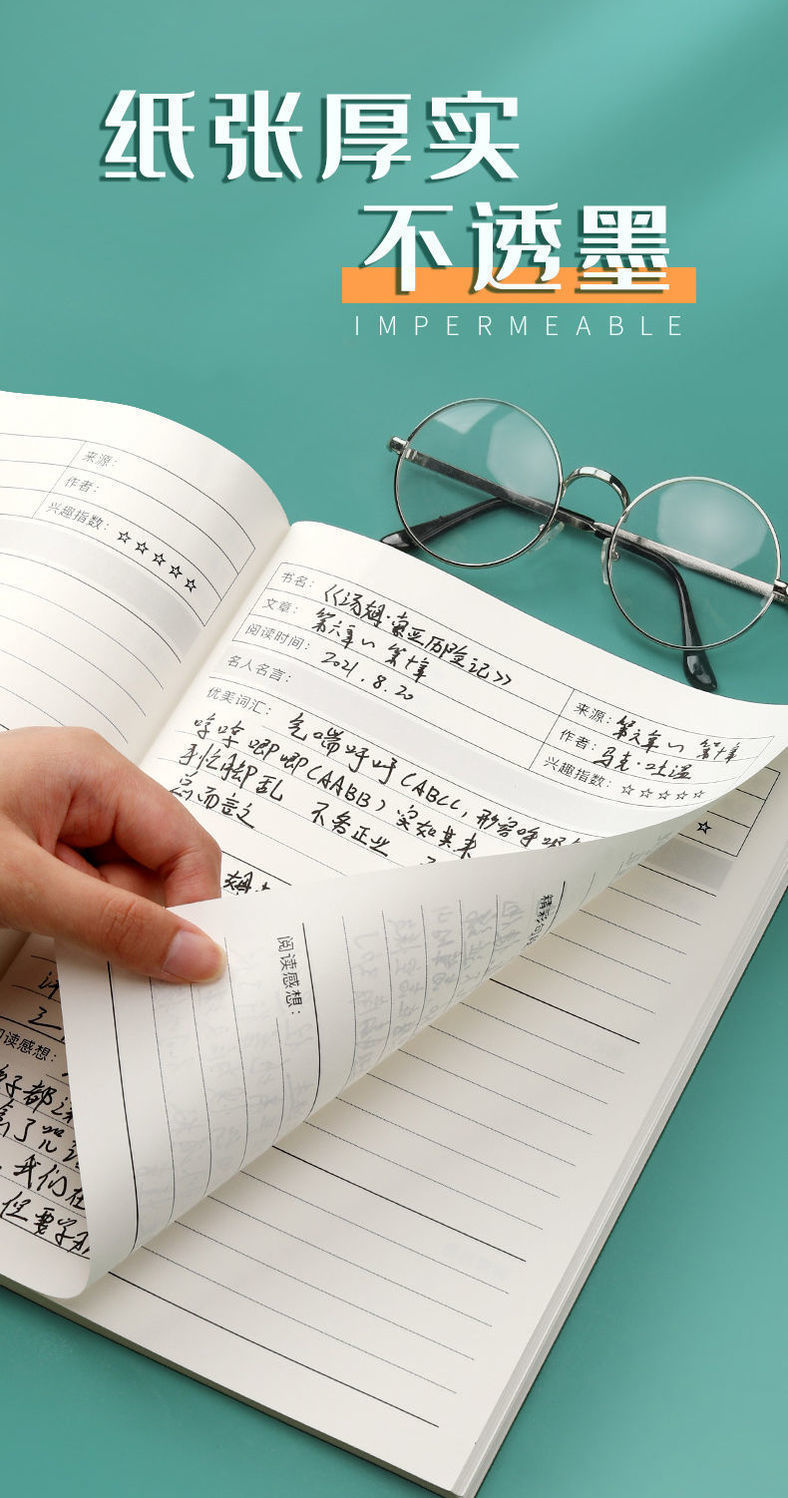 纸张厚实
不透墨
IMPERMEABLE
来源：
作者：
兴趣指数：☆☆☆☆☆
书名：《汤姆·索亚历险记》
文章：第六章~第十章
阅读时间：2021.8.20
来源：第六章~第十章
作者：马克·吐温
兴趣指数：☆☆☆☆☆
名人名言：
优美词汇：气喘呼呼（ABCC，形容呼吸
唧唧（AABB）突如其来
手忙脚乱 不务正业
言而言之
☆
精彩句段
阅读感想：
阅读感想：
都
了
我们在
但要学